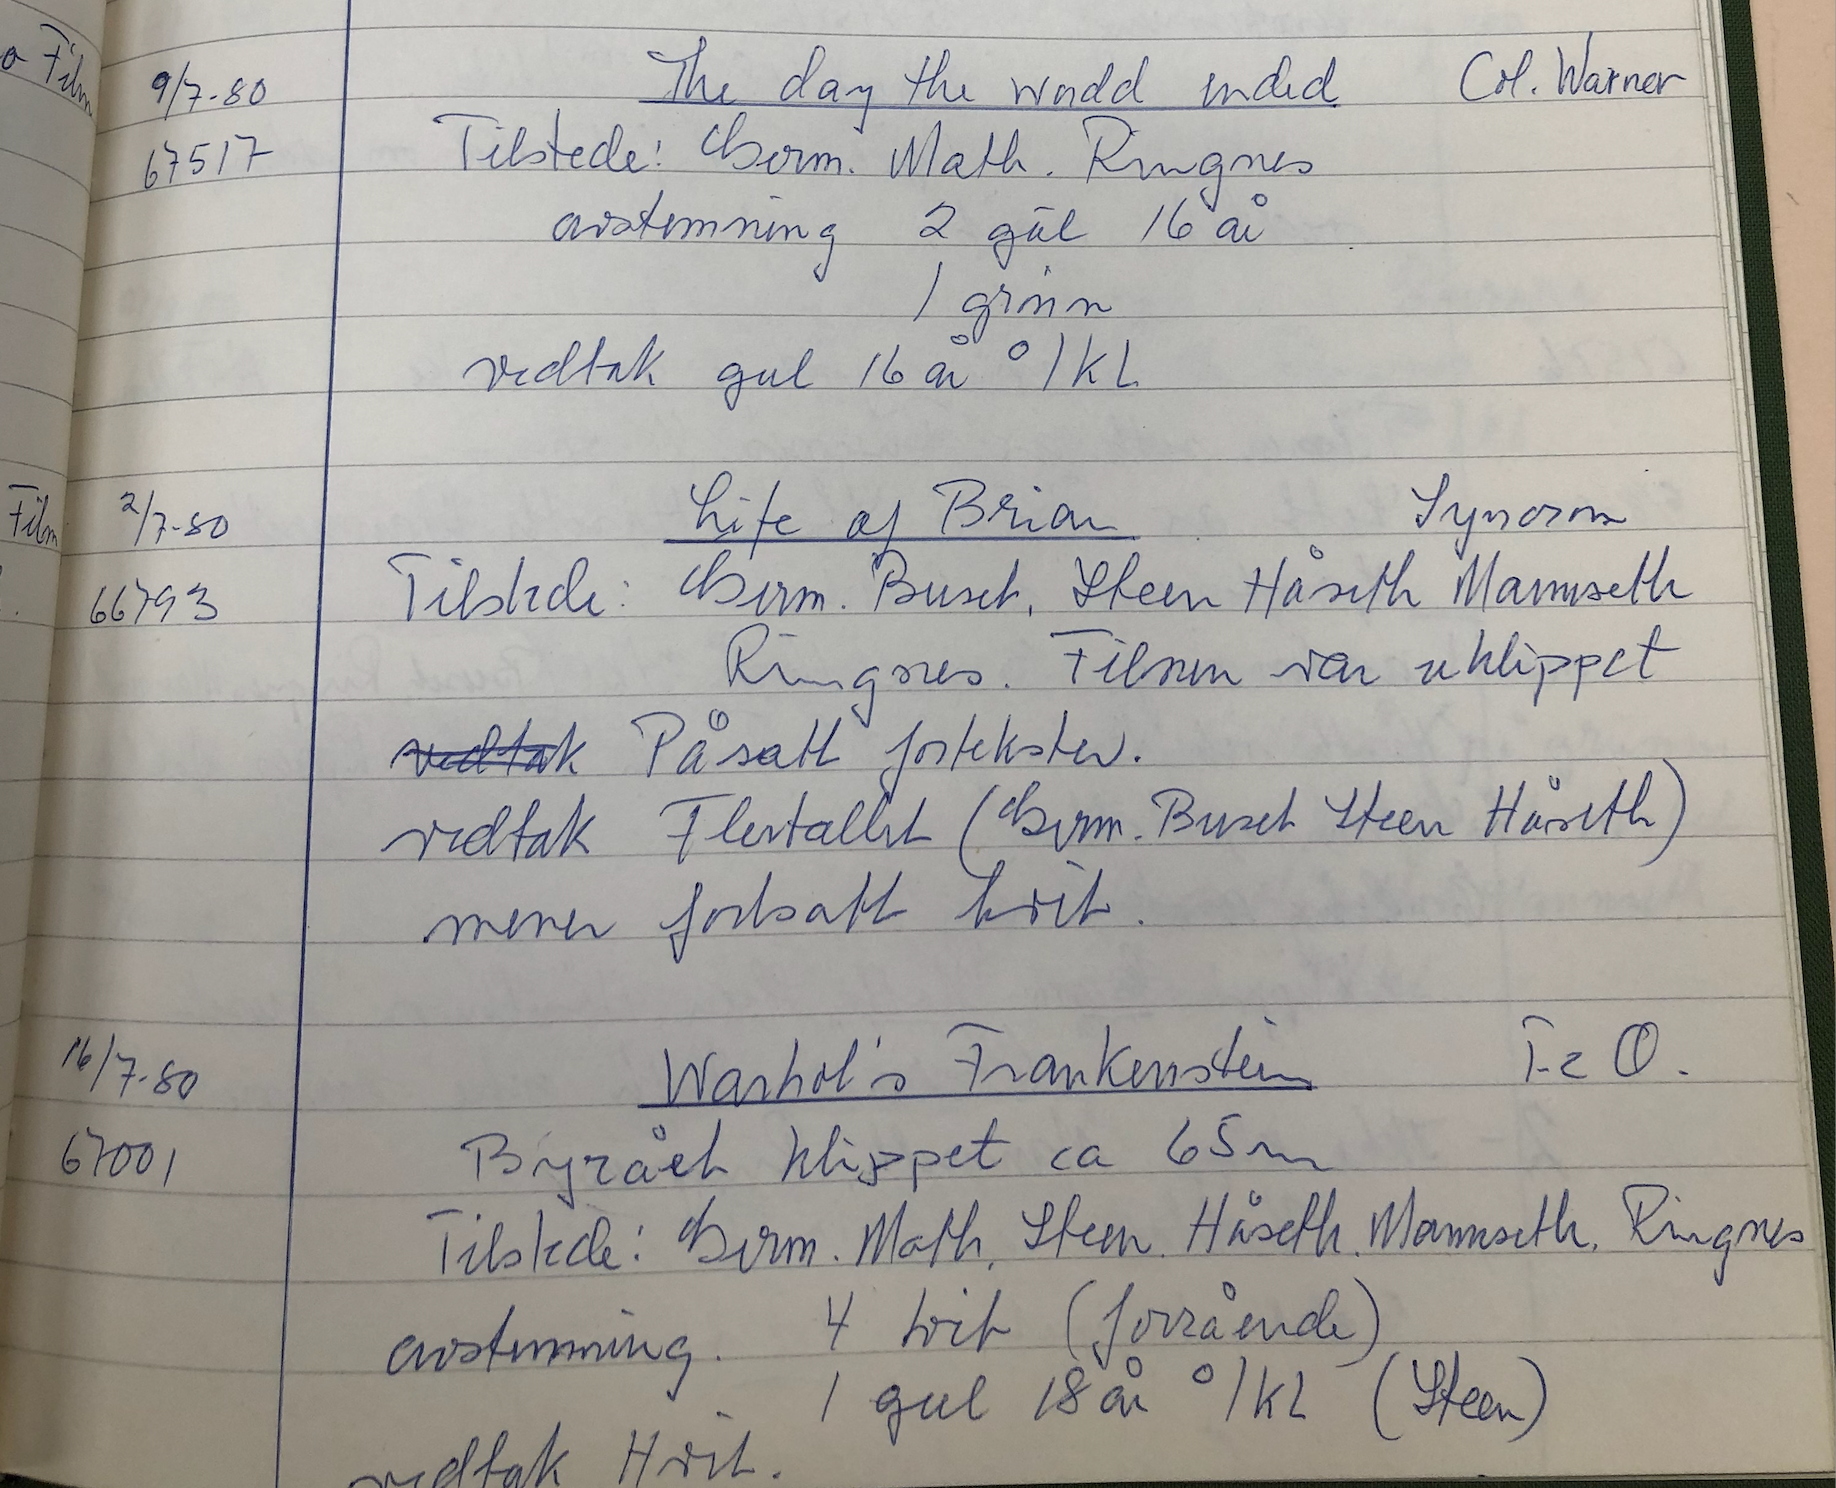 o Film
9/7-80 The day the world ended Col. Warner
67517 Tilstede: Germ. Math. Ringnes
avstemning 2 gul 16 år
1 grønn
vedtak gul 16 år °/kl
Film 2/7-80 Life of Brian Syncron
66793 Tilstede: Germ. Buset, Steen Håseth Mannseth
Ringnes. Filmen var uklippet
vedtak Påsatt fortekster.
vedtak Flertallet (Germ. Buset Steen Håseth)
mener fortsatt hvit.
16/7-80 Warhol's Frankenstein T-c O.
67001 Byrået klippet ca 65m
Tilstede: Germ. Math, Steen. Håseth. Mannseth. Ringnes
avstemning. 4 hvit (forrående)
1 gul 18 år °/kl (Steen)
vedtak Hvit.